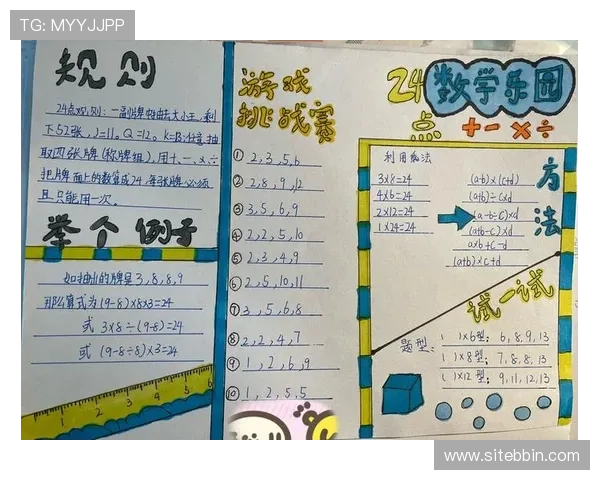 TG: MYYJJPP
规则
24点规则：一副牌抽去大小王，剩
下52张，J=11。Q=12。K=13。任意抽
取四张牌（称牌组），用+、-、×、÷
把牌面上的数算成24，每张牌必须
且只能用一次。
举个例子
如抽的牌是3,8,8,9
那么算式为(9-8)×8×3=24
或 3×8÷(9-8)=24
或 (9-8÷8)×3=24
1 2 3 4 5 6
游戏
挑战赛
① 2,3,5,6
② 2,8,9,12
③ 3,5,6,9
④ 2,2,5,10
⑤ 2,3,4,9
⑥ 2,5,10,11
⑦ 3,5,6,8
⑧ 2,2,4,7
⑨ 1,2,6,9
⑩ 1,2,5,5
24
点
数学乐园
+-×÷
方法
利用乘法
3×8=24
4×6=24
2×12=24
1×24=24
(a-b)×(c+d)
(a+b)÷c×d
(a-b÷c)×d
(a+b-c)×d
a×b+c-d
(a+b)×c+d
试一试
题型：
1×6型：6,8,9,13
1×8型：7,8,8,13
1×12型：9,11,12,13
www.sitebbin.com